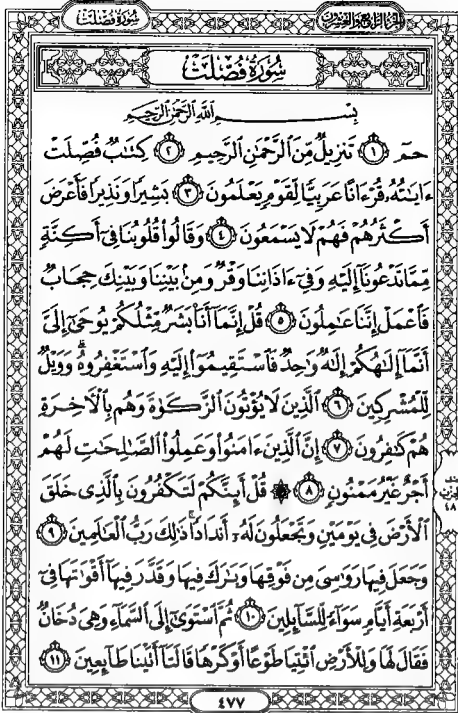 سُورَةُ فُصِّلَتْ
الجُزْءُ الرَّابِعُ وَالعِشْرُونَ
سُورَةُ فُصِّلَتْ
بِسْمِ اللَّهِ الرَّحْمَٰنِ الرَّحِيمِ
حمٓ ۝١ تَنزِيلٌ مِّنَ ٱلرَّحْمَٰنِ ٱلرَّحِيمِ ۝٢ كِتَٰبٌ فُصِّلَتْ
ءَايَٰتُهُۥ قُرْءَانًا عَرَبِيًّا لِّقَوْمٍ يَعْلَمُونَ ۝٣ بَشِيرًا وَنَذِيرًا فَأَعْرَضَ
أَكْثَرُهُمْ فَهُمْ لَا يَسْمَعُونَ ۝٤ وَقَالُوا۟ قُلُوبُنَا فِىٓ أَكِنَّةٍ
مِّمَّا تَدْعُونَآ إِلَيْهِ وَفِىٓ ءَاذَانِنَا وَقْرٌ وَمِنۢ بَيْنِنَا وَبَيْنِكَ حِجَابٌ
فَٱعْمَلْ إِنَّنَا عَٰمِلُونَ ۝٥ قُلْ إِنَّمَآ أَنَا۠ بَشَرٌ مِّثْلُكُمْ يُوحَىٰٓ إِلَىَّ
أَنَّمَآ إِلَٰهُكُمْ إِلَٰهٌ وَٰحِدٌ فَٱسْتَقِيمُوٓا۟ إِلَيْهِ وَٱسْتَغْفِرُوهُ ۗ وَوَيْلٌ
لِّلْمُشْرِكِينَ ۝٦ ٱلَّذِينَ لَا يُؤْتُونَ ٱلزَّكَوٰةَ وَهُم بِٱلْءَاخِرَةِ
هُمْ كَٰفِرُونَ ۝٧ إِنَّ ٱلَّذِينَ ءَامَنُوا۟ وَعَمِلُوا۟ ٱلصَّٰلِحَٰتِ لَهُمْ
أَجْرٌ غَيْرُ مَمْنُونٍ ۝٨ ۞ قُلْ أَئِنَّكُمْ لَتَكْفُرُونَ بِٱلَّذِى خَلَقَ
ٱلْأَرْضَ فِى يَوْمَيْنِ وَتَجْعَلُونَ لَهُۥٓ أَندَادًا ۚ ذَٰلِكَ رَبُّ ٱلْعَٰلَمِينَ ۝٩
وَجَعَلَ فِيهَا رَوَٰسِىَ مِن فَوْقِهَا وَبَٰرَكَ فِيهَا وَقَدَّرَ فِيهَآ أَقْوَٰتَهَا فِىٓ
أَرْبَعَةِ أَيَّامٍ سَوَآءً لِّلسَّآئِلِينَ ۝١٠ ثُمَّ ٱسْتَوَىٰٓ إِلَى ٱلسَّمَآءِ وَهِىَ دُخَانٌ
فَقَالَ لَهَا وَلِلْأَرْضِ ٱئْتِيَا طَوْعًا أَوْ كَرْهًا قَالَتَآ أَتَيْنَا طَآئِعِينَ ۝١١
٤٧٧